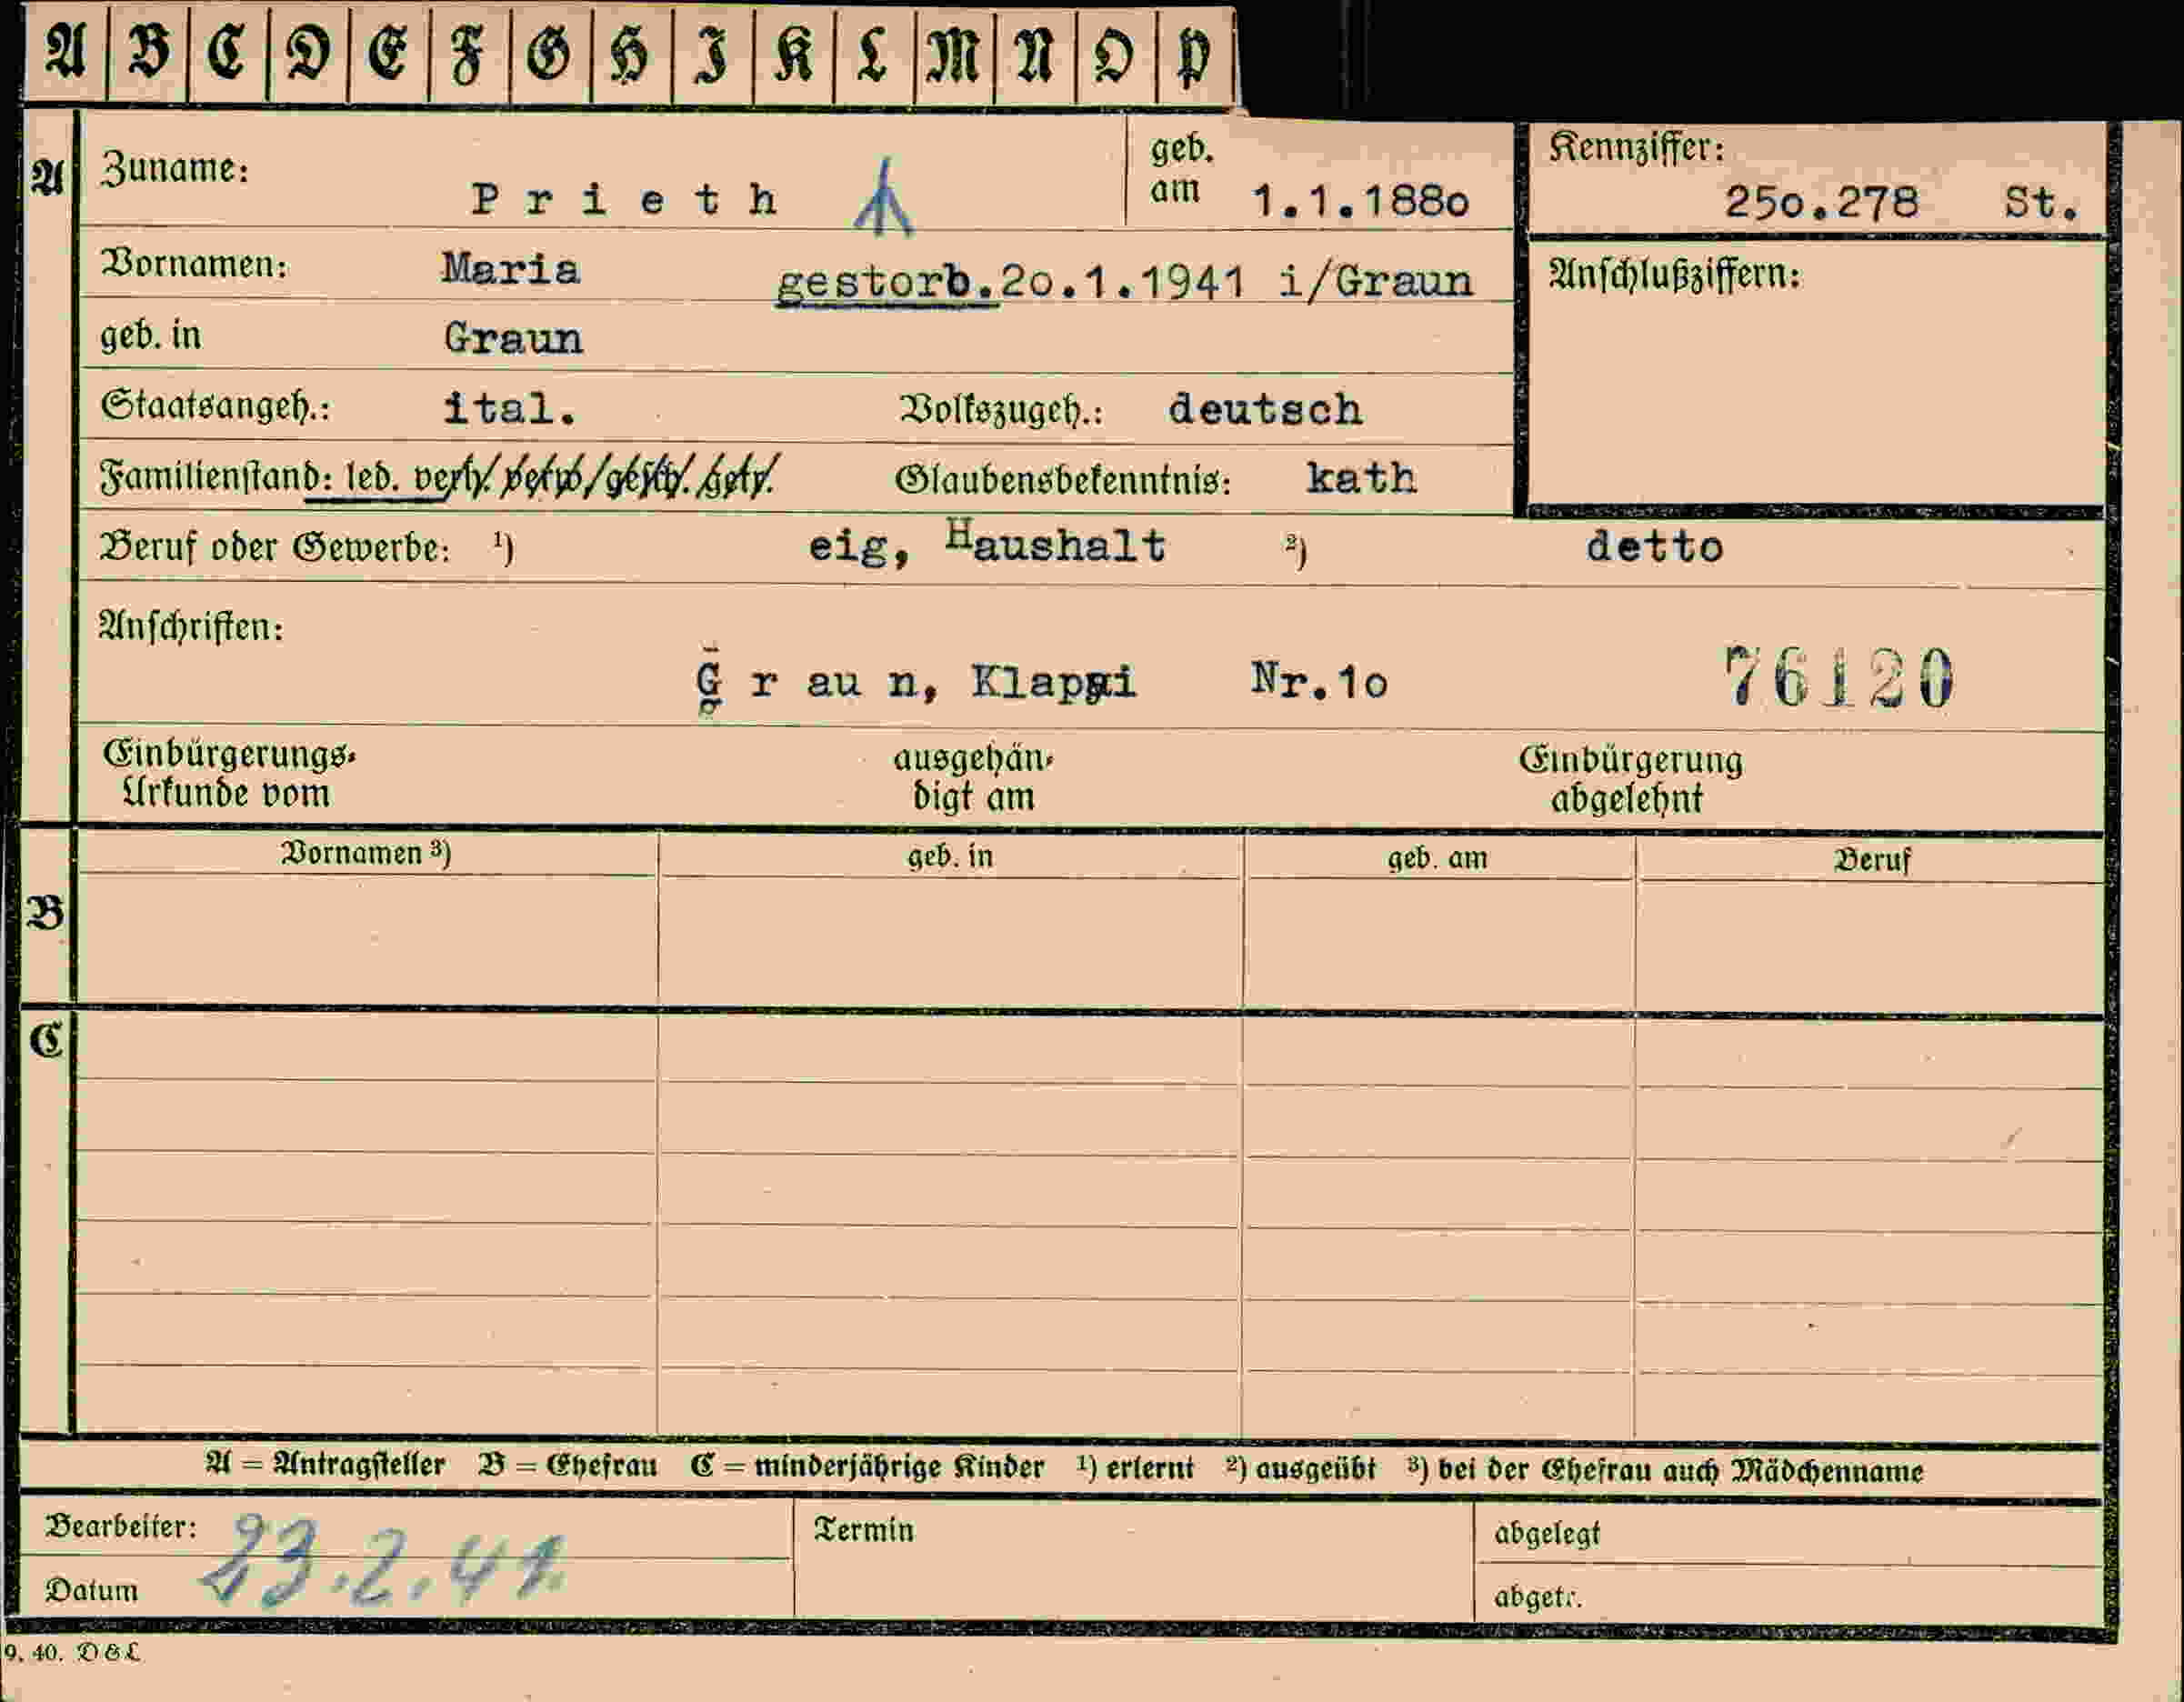 A B C D E F G H I K L M N O P
A Zuname: Prieth geb. am 1.1.188o Kennziffer: 25o.278 St.
Vornamen: Maria gestorb.2o.1.1941 i/Graun Anschlußziffern:
geb. in Graun
Staatsangeh.: ital. Volkszugeh.: deutsch
Familienstand: led. verh. verw. gesch. getr. Glaubensbekenntnis: kath
Beruf oder Gewerbe: ¹) eig, Haushalt ²) detto
Anschriften:
G r au n, Klappi Nr.1o 76120
Einbürgerungs-Urkunde vom ausgehändigt am Einbürgerung abgelehnt
Vornamen ³) geb. in geb. am Beruf
B
C
A = Antragsteller B = Ehefrau C = minderjährige Kinder ¹) erlernt ²) ausgeübt ³) bei der Ehefrau auch Mädchenname
Bearbeiter: Termin abgelegt
Datum 23.2.41. abgetr.
9. 40. D&L